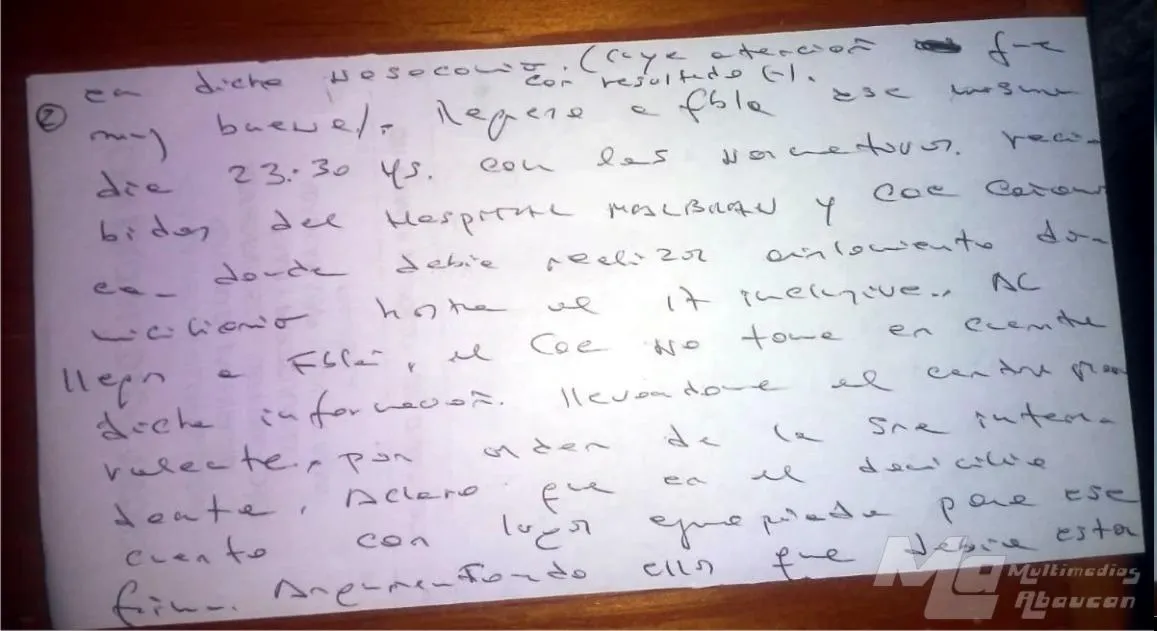 ②
en dicho Nosocomio. (cuya atención fue
con resultado (-).
muy buena). Regreso a Fbla ese mismo
día 23:30 hs. con las normativas reci-
bidas del Hospital MALBRAN y COE Catam
ca_ donde debía realizar aislamiento do-
miciliario hasta el 17 inclusive., AL
llegar a Fbla, el COE NO toma en cuenta
dicha información. llevandome al centro
valecte., por orden de la Sra inten-
denta, Aclaro que en el domicilio
cuento con lugar apropiado para ese
fin.. Argumentando ella que debía estar
Multimedios
Abaucan